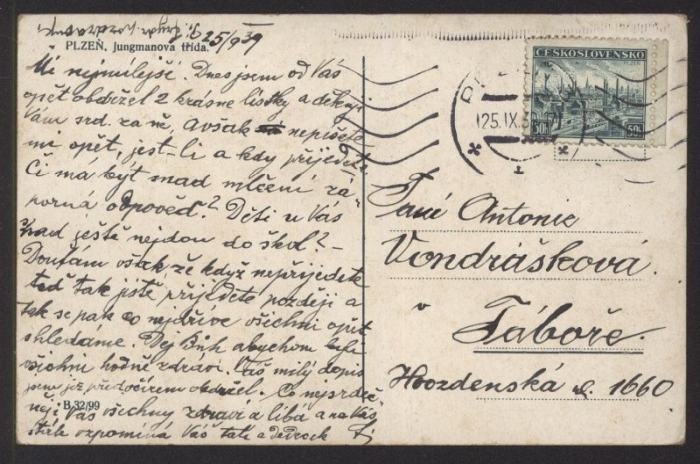 25/9 39
PLZEŇ, Jungmanova třída.
Mí nejmilejší. Dnes jsem od Vás
opět obdržel 2 krásné lístky a děkuji
Vám srd. za ně, avšak nepíšete
mi opět, jest-li a kdy přijedete.
Či má být snad mlčení zá-
porná odpověď? Děti u Vás
snad ještě nejdou do škol? –
Doufám však, že když nepřijedete
teď tak jistě přijedete později a
tak se pak co nejdříve všichni opět
shledáme. Dej Bůh abychom byli
všichni hodně zdrávi. Váš milý dopis
jsem již předevčírem obdržel. Co nejsrdeč-
něj. Vás všechny zdraví a líbá a na Vás
stále vzpomíná Váš táta a dědoček
B 32/99
ČESKOSLOVENSKO
50h 50h
25.IX.39
Paní Antonie
Vondrášková
v
Táboře
Hvozdenská č. 1660